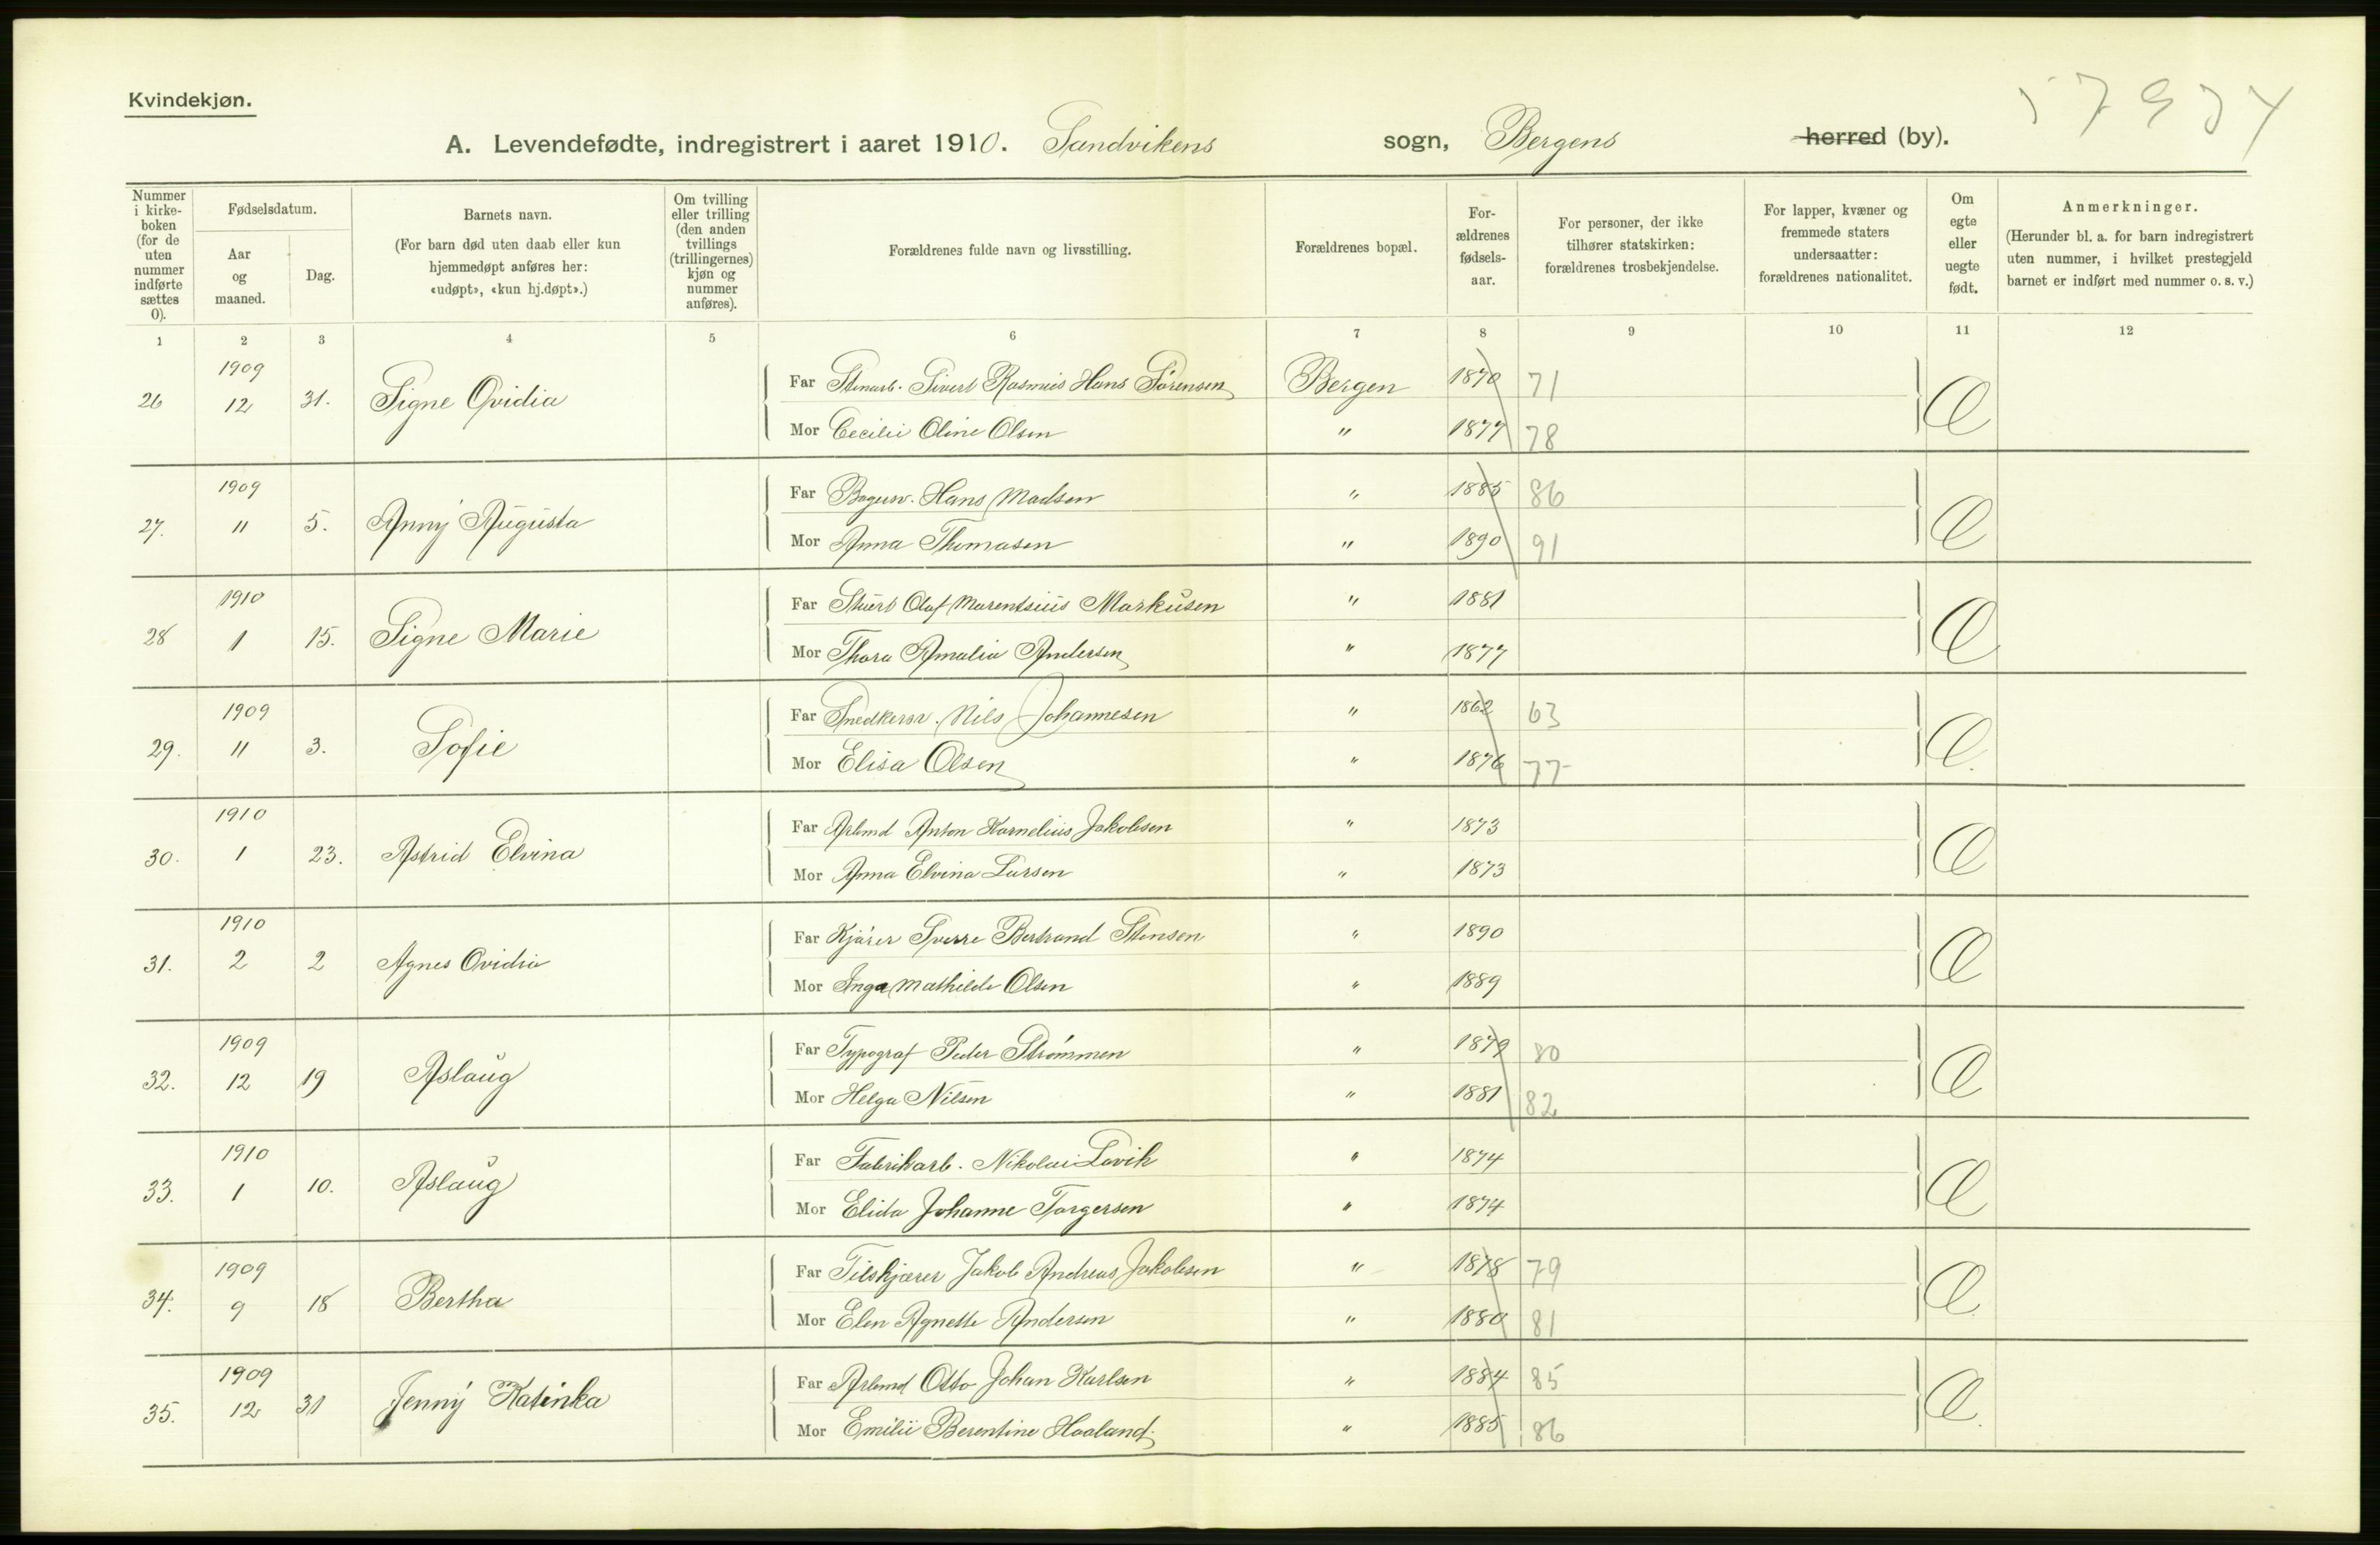 Kvindekjøn.
57974
A. Levendefødte, indregistrert i aaret 1910. Sandvikens sogn, Bergens herred (by).
Nummer i kirke-boken (for de uten nummer indførte sættes 0).
Fødselsdatum.
Aar og maaned.
Dag.
Barnets navn.
(For barn død uten daab eller kun hjemmedøpt anføres her: «udøpt», «kun hj.døpt».)
Om tvilling eller trilling (den anden tvillings (trillingernes) kjøn og nummer anføres).
Forældrenes fulde navn og livsstilling.
Forældrenes bopæl.
For-ældrenes fødsels-aar.
For personer, der ikke tilhører statskirken: forældrenes trosbekjendelse.
For lapper, kvæner og fremmede staters undersaatter: forældrenes nationalitet.
Om egte eller uegte født.
Anmerkninger.
(Herunder bl. a. for barn indregistrert uten nummer, i hvilket prestegjeld barnet er indført med nummer o. s. v.)
1 2 3 4 5 6 7 8 9 10 11 12
26 1909 12 31. Signe Ovidia
Far Stenarb. Sivert Rasmus Hans Sørensen Bergen 1870 71
Mor Cecilie Oline Olsen " 1877 78
27. 1909 11 5. Anny Augusta
Far Bagersv. Hans Madsen " 1885 86
Mor Anna Thomasen " 1890 91
28 1910 1 15. Signe Marie
Far Stuert Olaf Marentsius Markusen " 1881
Mor Thora Amalia Andersen " 1877
29. 1909 11 3. Sofie
Far Snedkersv. Nils Johannesen " 1862 63
Mor Elisa Olsen " 1876 77
30. 1910 1 23. Astrid Elvina
Far Arbmd Anton Kornelius Jakobsen " 1873
Mor Anna Elvina Larsen " 1873
31. 1910 2 2 Agnes Ovidia
Far Kjører Sverre Bertrand Stensen " 1890
Mor Inga Mathilde Olsen " 1889
32. 1909 12 19 Aslaug
Far Typograf Peder Strømmen " 1879 80
Mor Helga Nilsen " 1881 82
33. 1910 1 10. Aslaug
Far Fabrikarb. Nikolai Løvik " 1874
Mor Elida Johanne Torgersen " 1874
34. 1909 9 18 Bertha
Far Tilskjærer Jakob Andreas Jakobsen " 1878 79
Mor Elen Agnette Andersen " 1880 81
35. 1909 12 31 Jenny Katinka
Far Arbmd Otto Johan Karlsen " 1884 85
Mor Emilie Berentine Haaland. " 1885 86